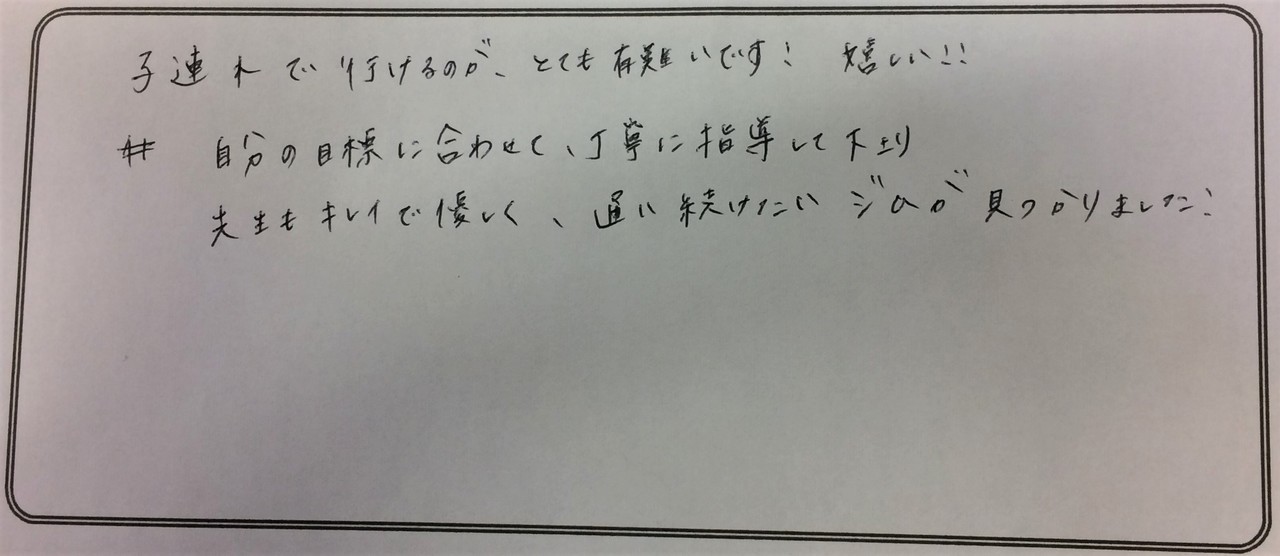 子連れで行けるのが、とても有難いです! 嬉しい!!
# 自分の目標に合わせて、丁寧に指導して下さり
先生もキレイで優しく、通い続けたいジムが見つかりました!